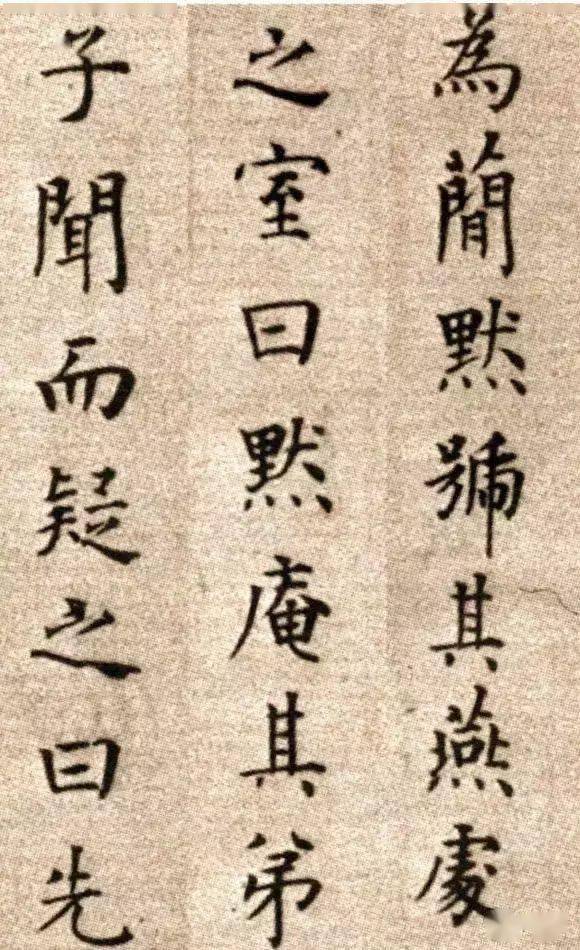 為蕑黙號其燕處
之室曰黙庵其弟
子聞而疑之曰先